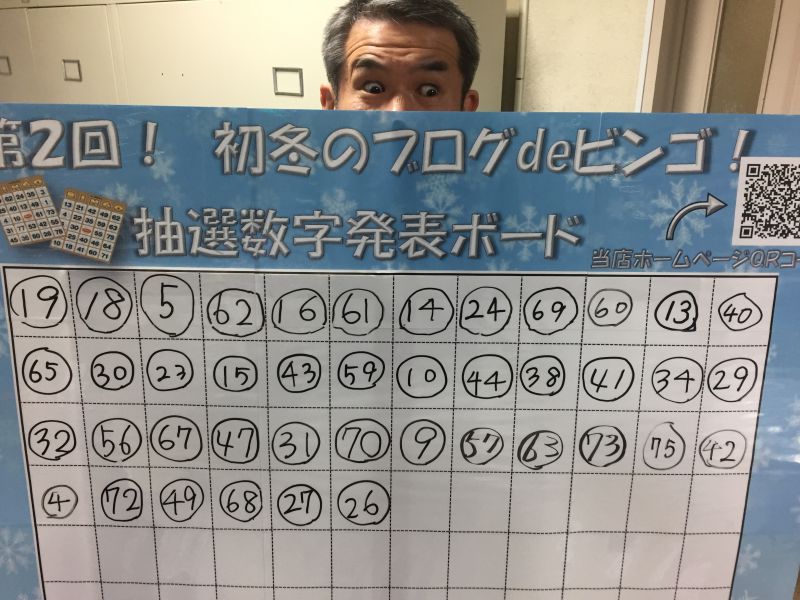 第2回！ 初冬のブログdeビンゴ！
抽選数字発表ボード
当店ホームページQRコー
19 18 5 62 16 61 14 24 69 60 13 40
65 30 23 15 43 59 10 44 38 41 34 29
32 56 67 47 31 70 9 57 63 73 75 42
4 72 49 68 27 26